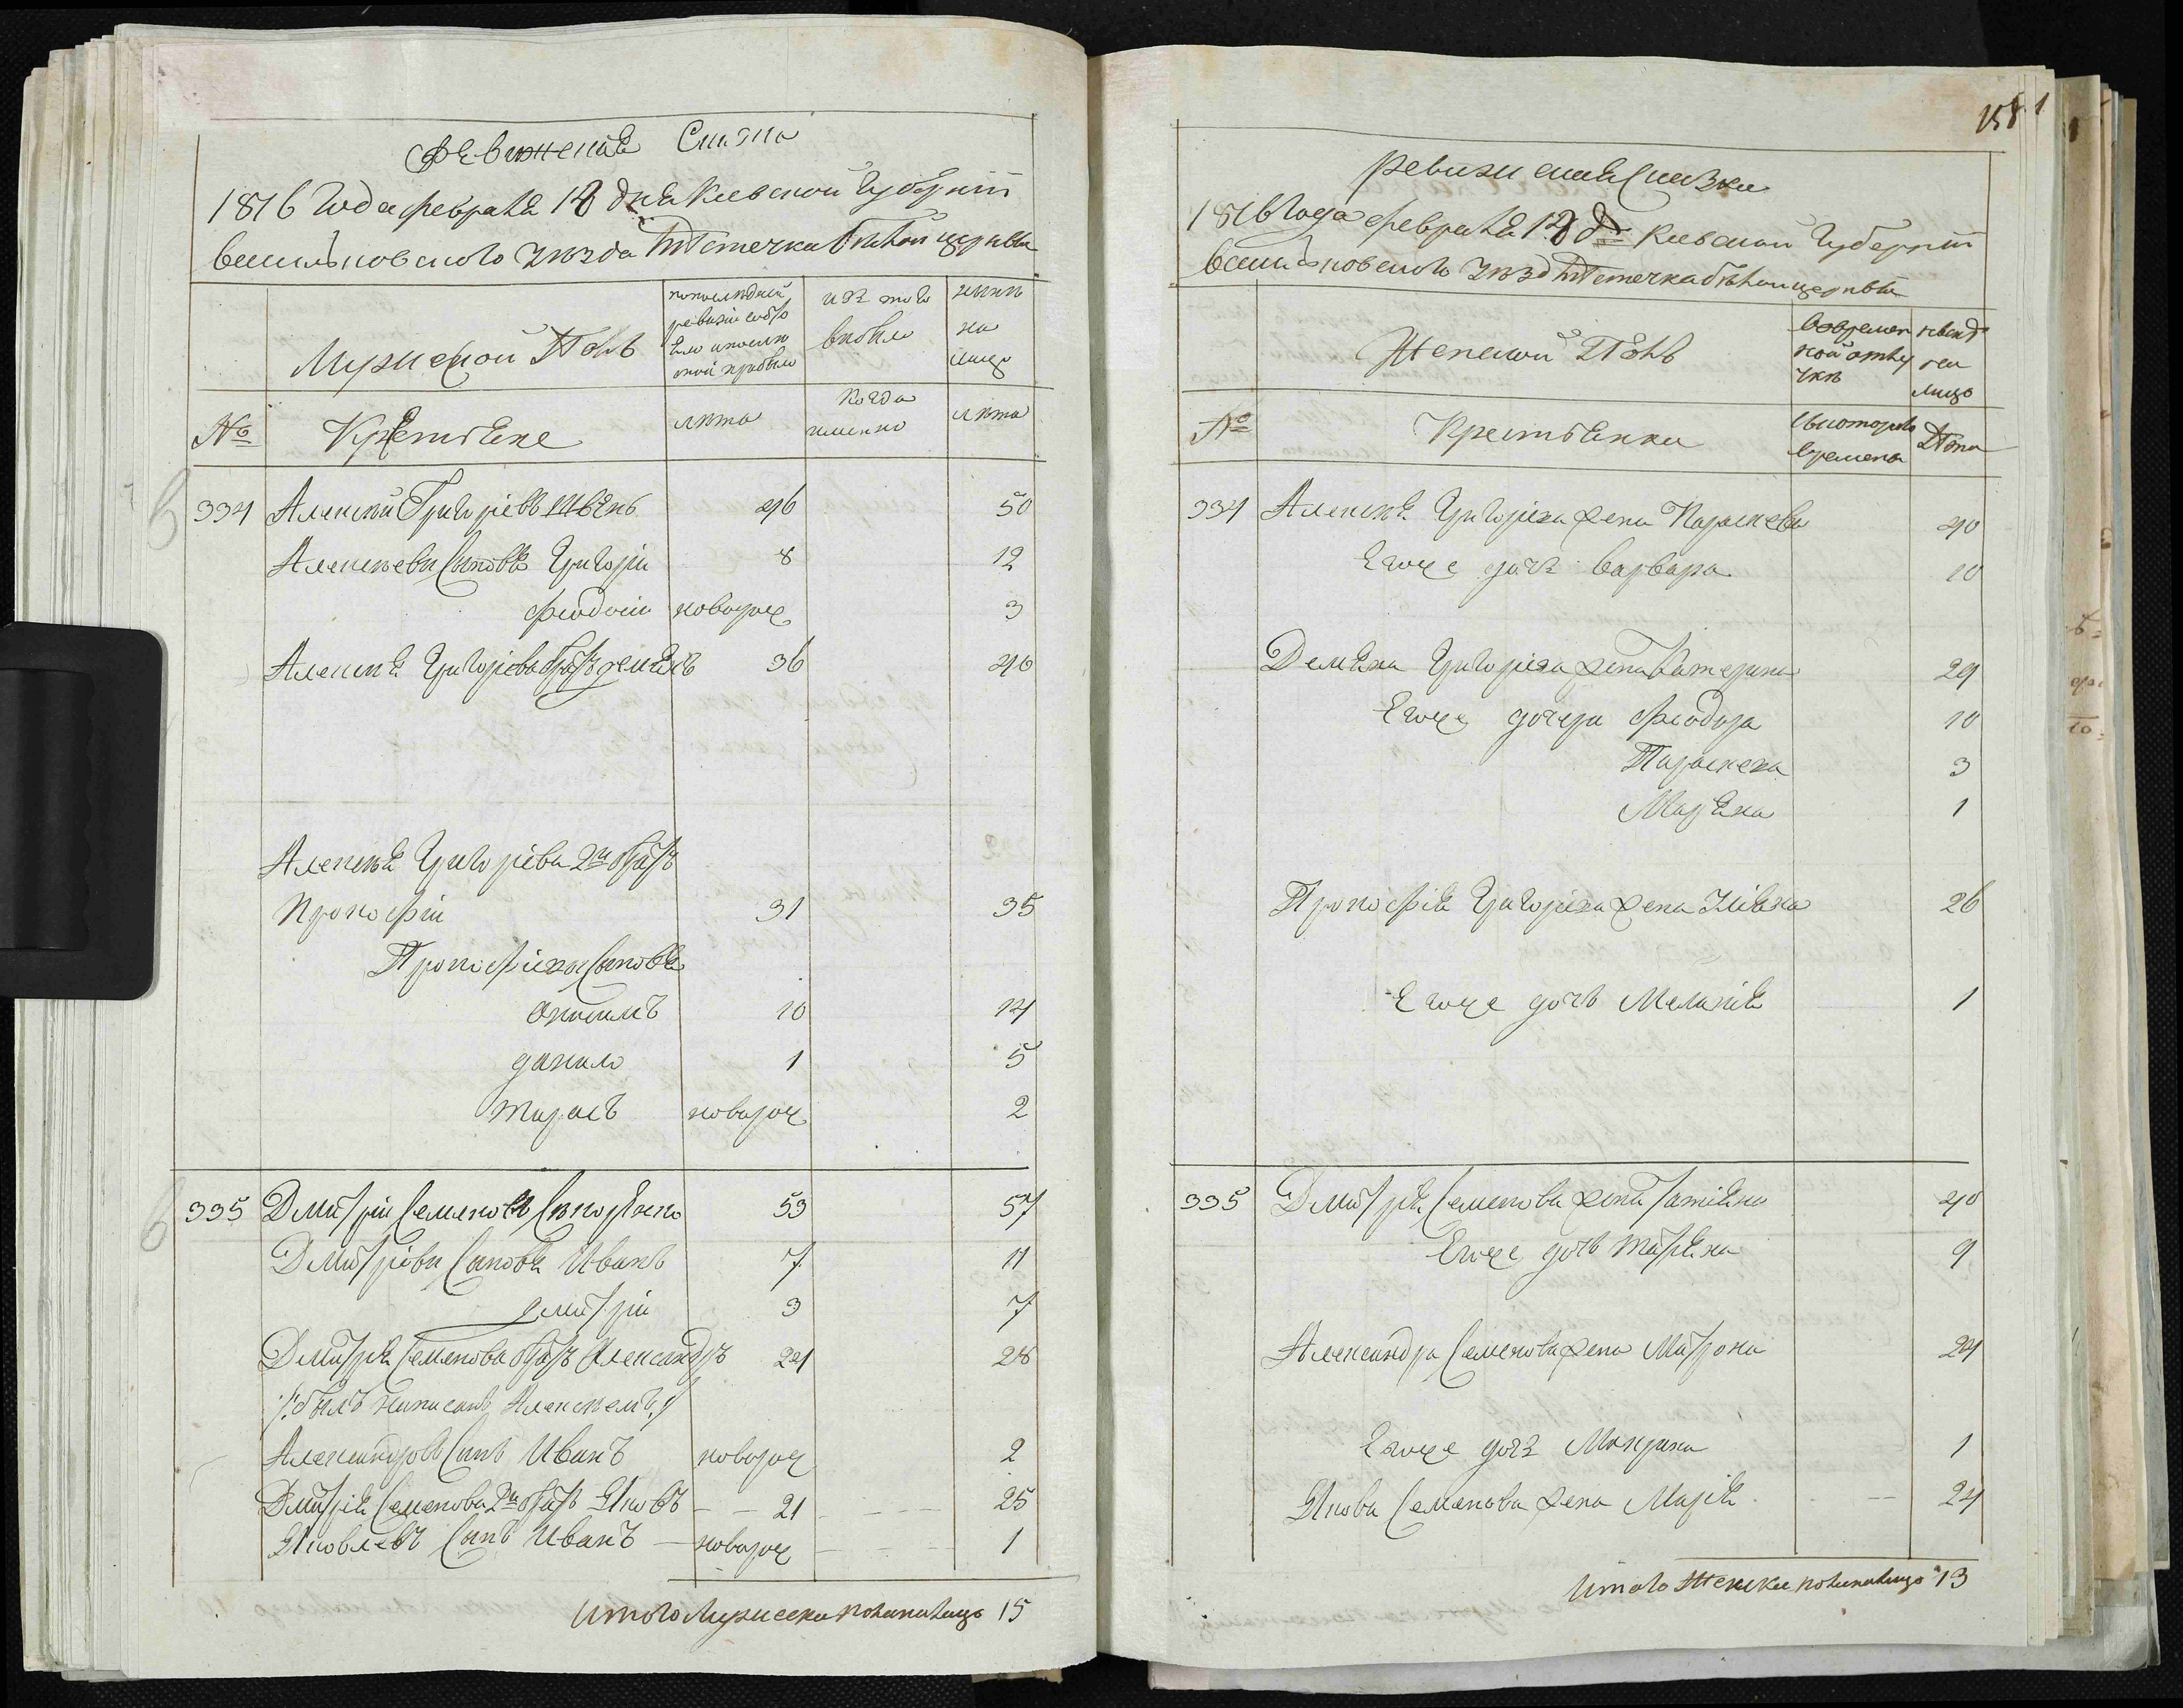 Ревизская Сказка
1816 Года февраля 18 дня Киевской Губернiи
васильковского уезда Местечка белой церквы
Мужеской Полъ
по последней ревизiи состояло и после оной прибыло
изъ того выбыло
ныне на лицо
№
Крестьяне
лета
Когда именно
лета
334 Алексий Григорiевъ 46 50
Алексеевы Сыновья Григорiй 8 12
феодосiй новорож 3
Алексея Григорiева братъ демьянъ 36 40
Алексея Григорiева 2й братъ
Прокофiй 31 35
Прокофiевы Сыновья
онисимъ 10 14
данило 1 5
тарасъ новорож 2
335 Дмитрiй Семеновъ 53 57
Дмитрiевы Сыновья Иванъ 7 11
дмитрiй 3 7
Дмитрiя Семенова братъ Александръ 24 28
/:былъ написанъ Алексеемъ:/
Александровъ Сынъ Иванъ новорож 2
Дмитрiя Семенова 2й братъ Яковъ 21 25
Яковлевъ Сынъ Иванъ новорож 1
Итого Мужеска пола на лицо 15
158
ревизская Сказка
1816 Года февраля 18 д Киевской Губернiи
васильковского уезд Местечка белой церквы
Женской Полъ
Во временной отлучке
ныне на лицо
№
Крестьянки
Съ которого времени
Лета
334 Алексея Григорiева жена Параскева 40
Егоже дочъ варвара 10
Демьяна Григорiева жена Катерина 29
Егоже дочери феодора 10
Параскева 3
Марьяна 1
Прокофiя Григорiева жена Улiяна 26
Егоже дочь Меланiя 1
335 Дмитрiя Семенова жена Татiяна 40
Егоже дочь 9
Александра Семенова жена Матрона 24
Егоже дочъ Макрина 1
Якова Семенова жена Марiя 24
Итого Женска пола на лицо 13